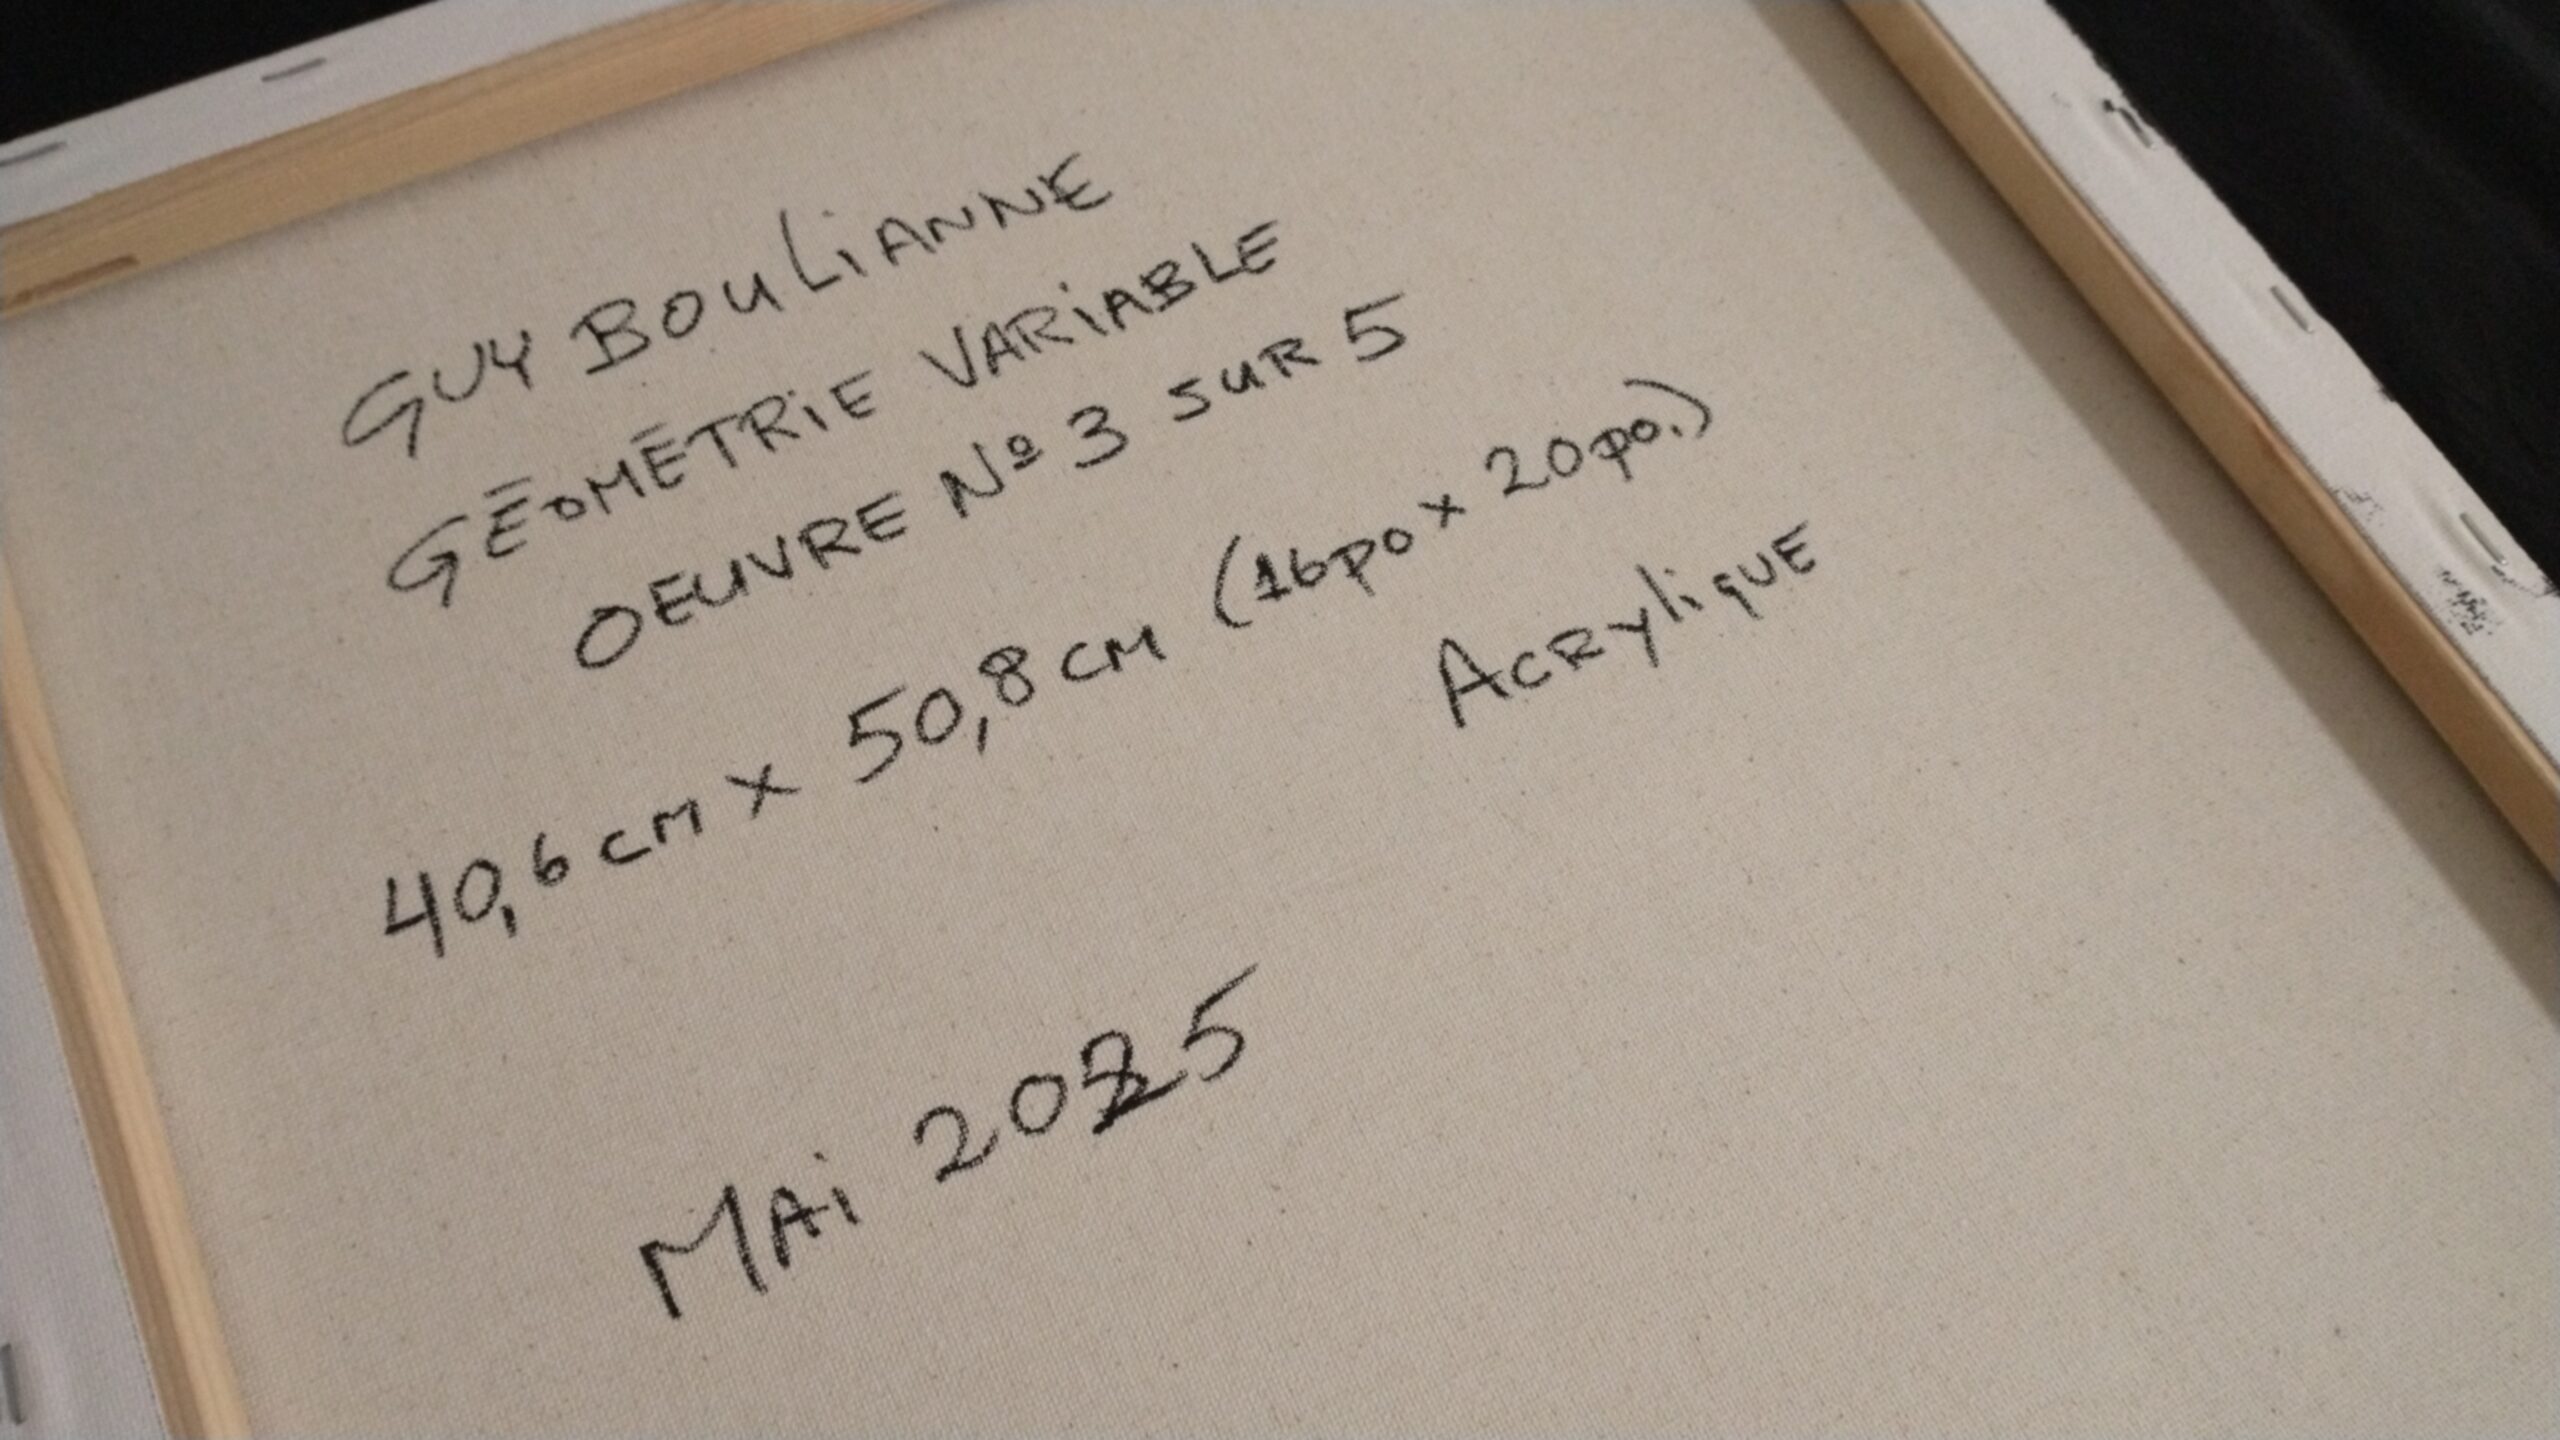 GUY BOULIANNE
GÉOMÉTRIE VARIABLE
OEUVRE Nº 3 SUR 5
40,6 CM X 50,8 CM (16PO X 20PO.)
ACRYLIQUE
MAI 2025